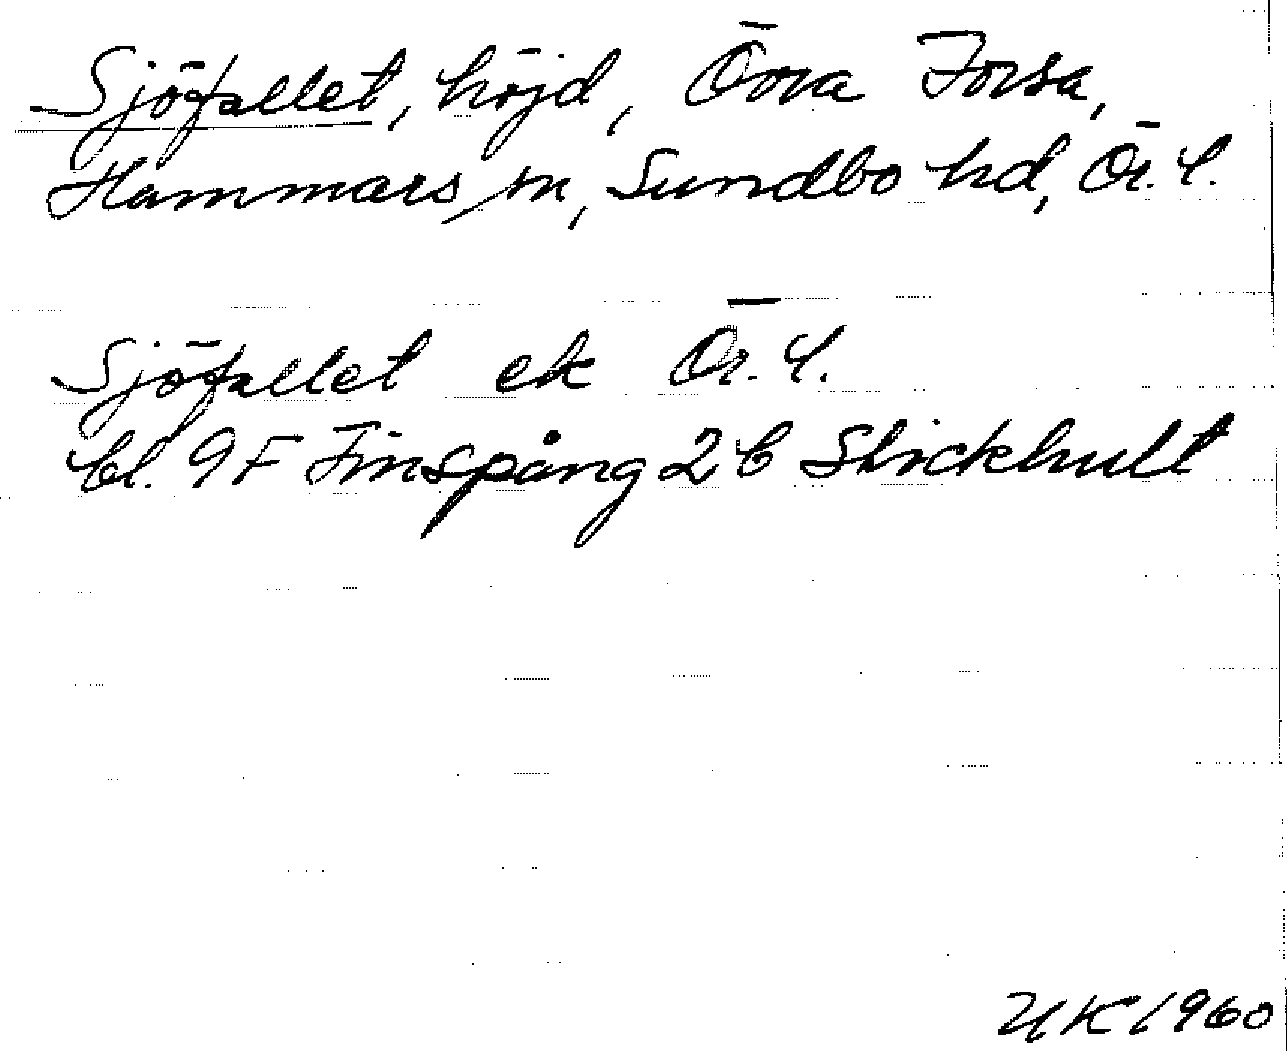 Sjöfallet, höjd, Övra Forsa,
Hammars sn, Sundbo hd, Ör. l.
Sjöfallet ek Ör. l.
bl. 9F Finspång 2b Stickhult
UK 1960